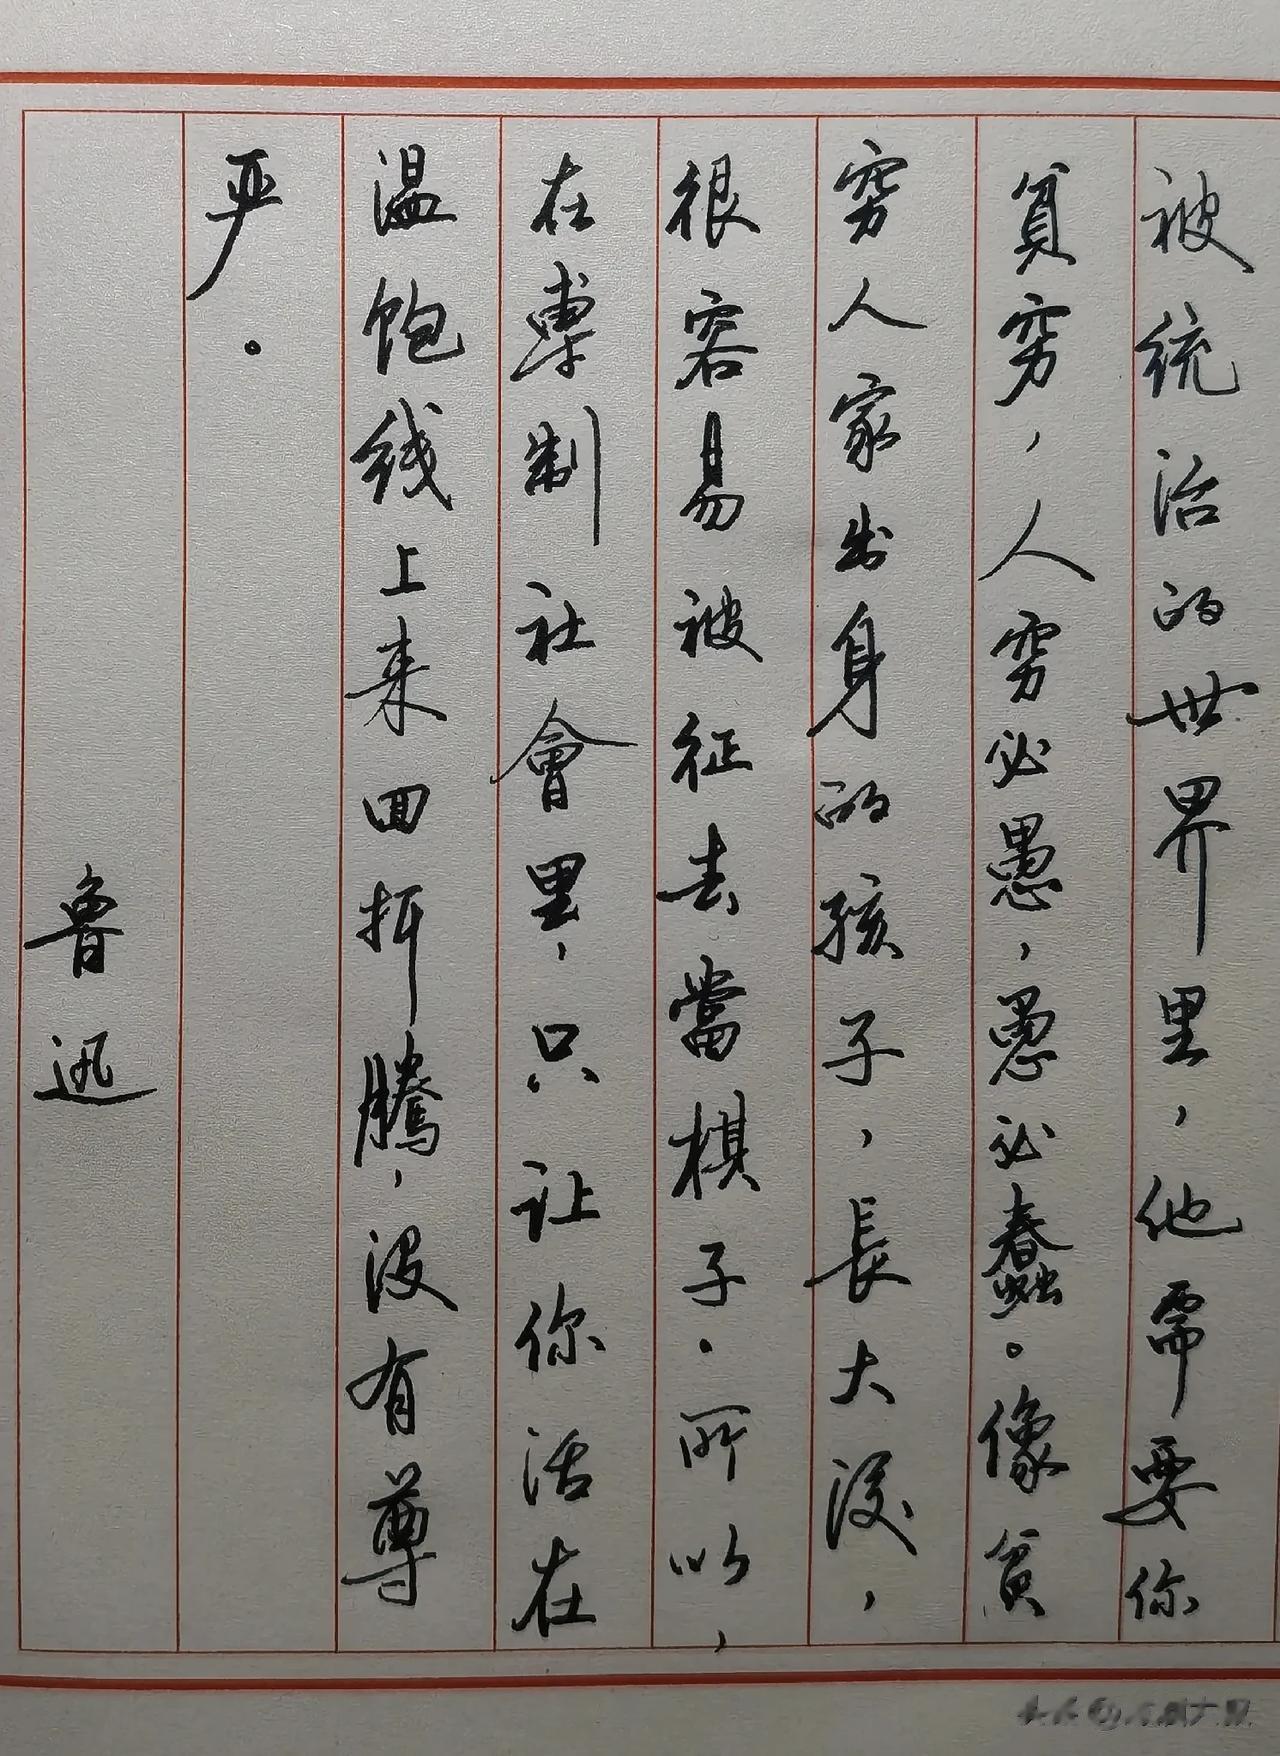 被统治的世界里，他需要你
貧穷，人穷必愚，愚必蠢。像貧
穷人家出身的孩子，長大後，
很容易被征去當棋子.所以，
在專制社會里，只让你活在
温饱线上来回折騰，没有尊
严.
鲁迅